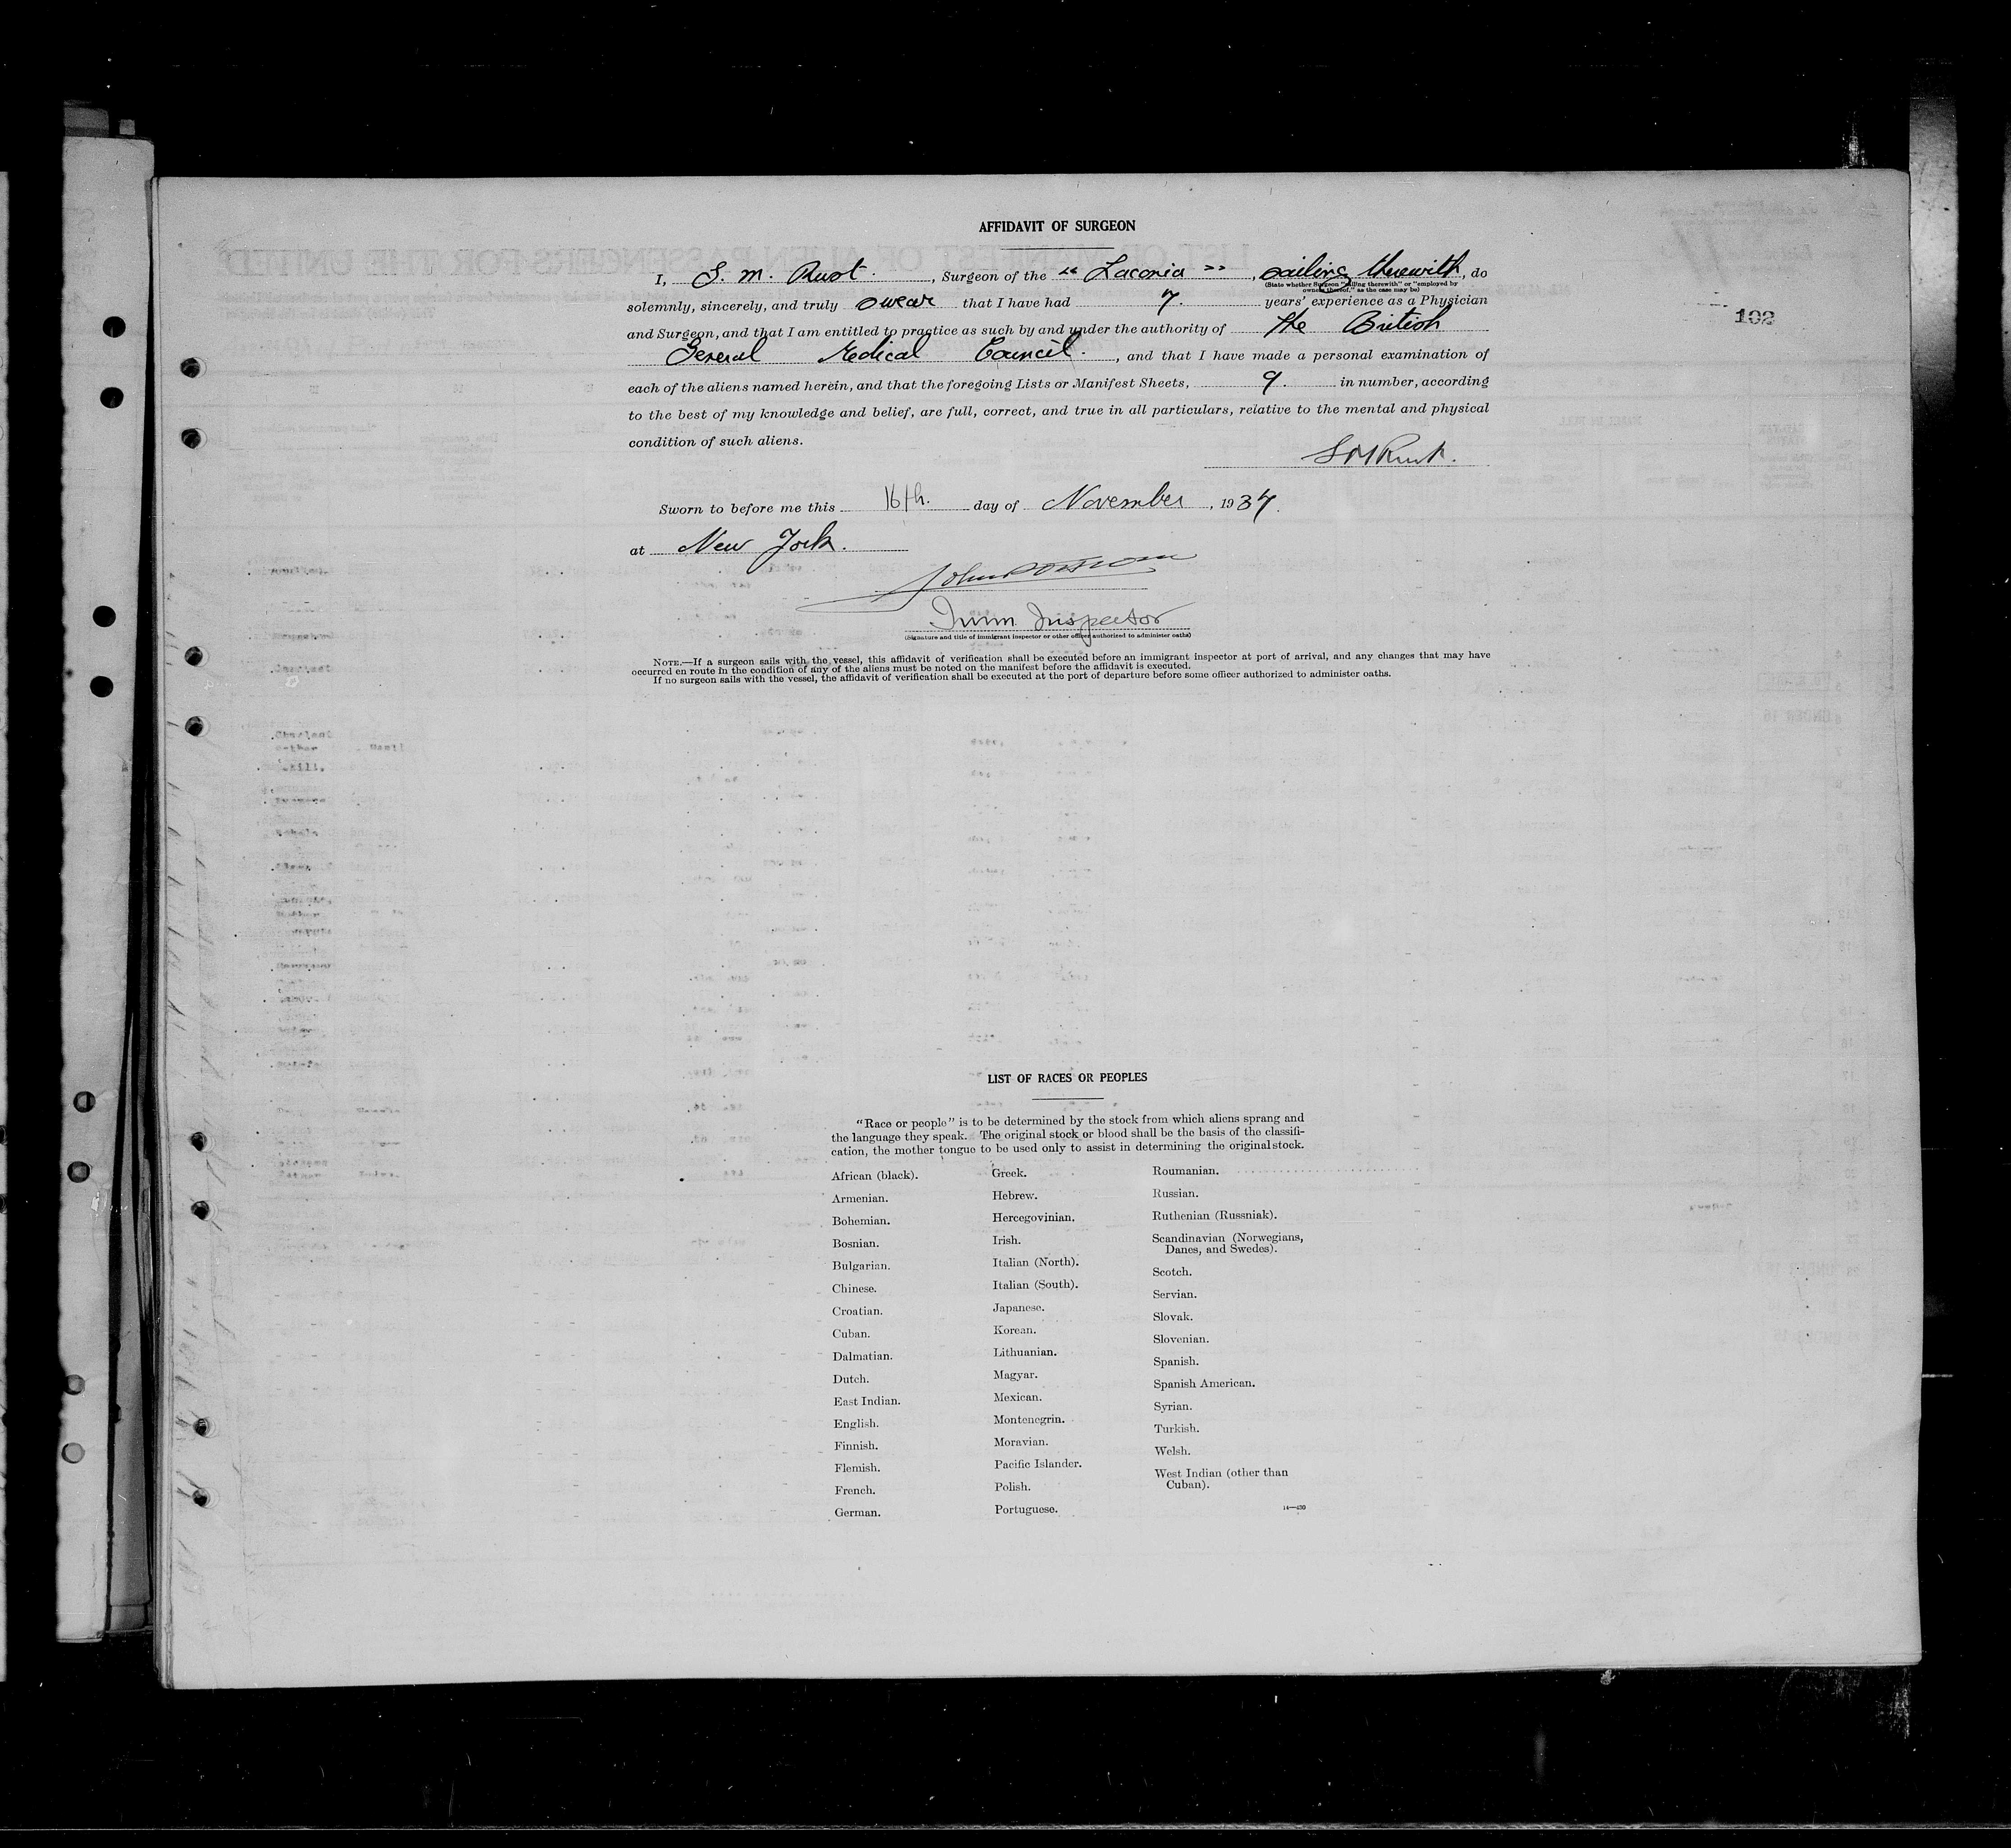 AFFIDAVIT OF SURGEON
I, S. M. Rust., Surgeon of the "Laconia", sailing therewith, do
(State whether Surgeon "sailing therewith" or "employed by
owners thereof," as the case may be)
solemnly, sincerely, and truly swear that I have had 7. years' experience as a Physician
and Surgeon, and that I am entitled to practice as such by and under the authority of the British
General Medical Council., and that I have made a personal examination of
each of the aliens named herein, and that the foregoing Lists or Manifest Sheets, 9. in number, according
to the best of my knowledge and belief, are full, correct, and true in all particulars, relative to the mental and physical
condition of such aliens.
S M Rust.
Sworn to before me this 16th. day of November, 1937.
at New York.
Imm Inspector
(Signature and title of immigrant inspector or other officer authorized to administer oaths)
NOTE.—If a surgeon sails with the vessel, this affidavit of verification shall be executed before an immigrant inspector at port of arrival, and any changes that may have
occurred en route in the condition of any of the aliens must be noted on the manifest before the affidavit is executed.
If no surgeon sails with the vessel, the affidavit of verification shall be executed at the port of departure before some officer authorized to administer oaths.
102
LIST OF RACES OR PEOPLES
"Race or people" is to be determined by the stock from which aliens sprang and
the language they speak. The original stock or blood shall be the basis of the classifi-
cation, the mother tongue to be used only to assist in determining the original stock.
African (black).
Armenian.
Bohemian.
Bosnian.
Bulgarian.
Chinese.
Croatian.
Cuban.
Dalmatian.
Dutch.
East Indian.
English.
Finnish.
Flemish.
French.
German.
Greek.
Hebrew.
Hercegovinian.
Irish.
Italian (North).
Italian (South).
Japanese.
Korean.
Lithuanian.
Magyar.
Mexican.
Montenegrin.
Moravian.
Pacific Islander.
Polish.
Portuguese.
Roumanian.
Russian.
Ruthenian (Russniak).
Scandinavian (Norwegians,
Danes, and Swedes).
Scotch.
Servian.
Slovak.
Slovenian.
Spanish.
Spanish American.
Syrian.
Turkish.
Welsh.
West Indian (other than
Cuban).
14—430